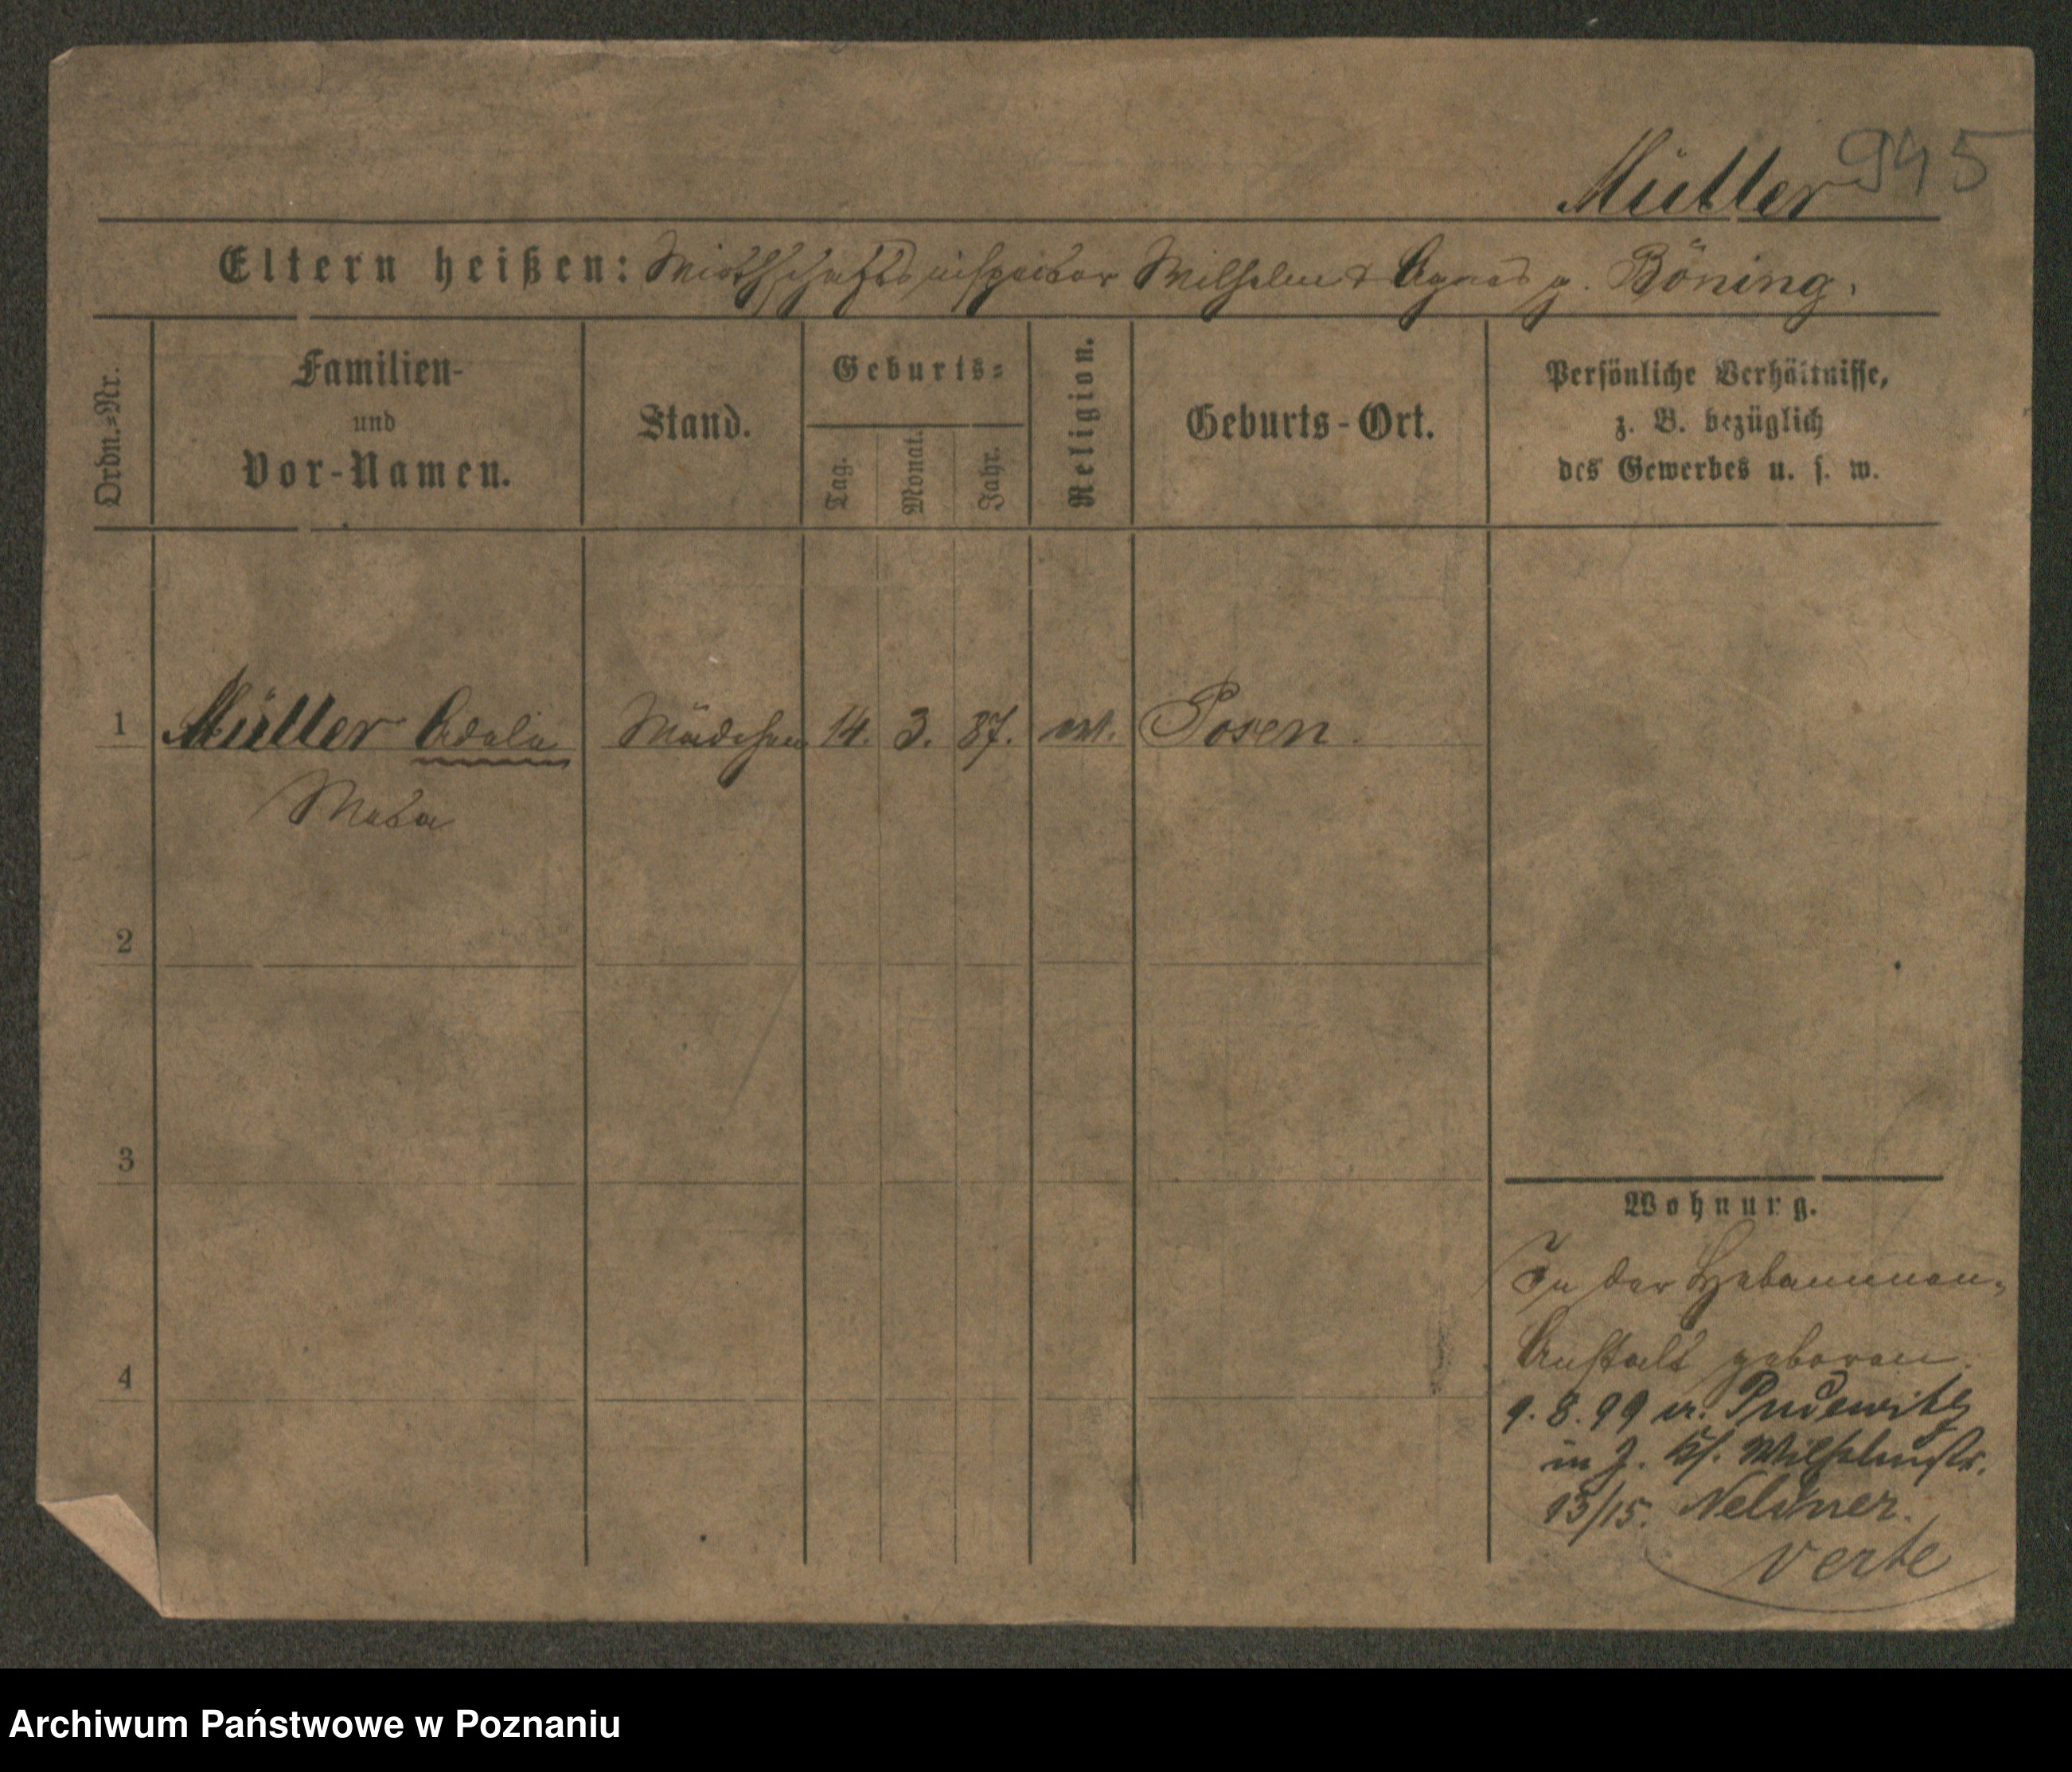 945
Müller
Eltern heißen: Wirthschaftsinspector Wilhelm & Agnes g. Böning.
Ordn.=Nr.
Familien-
und
Vor-Namen.
Stand.
Geburts=
Tag.
Monat.
Jahr.
Religion.
Geburts-Ort.
Persönliche Verhältnisse,
z. B. bezüglich
des Gewerbes u. s. w.
1 Müller Adele Mädchen 14. 3. 87. ev. Posen.
Meta
2
3
4
Wohnung.
In der Hebammen-
Anstalt geboren.
9. 8. 99 v. Pudewitz
in Z. Kl. Wilhelmstr.
13/15. Neldner.
verte
Archiwum Państwowe w Poznaniu